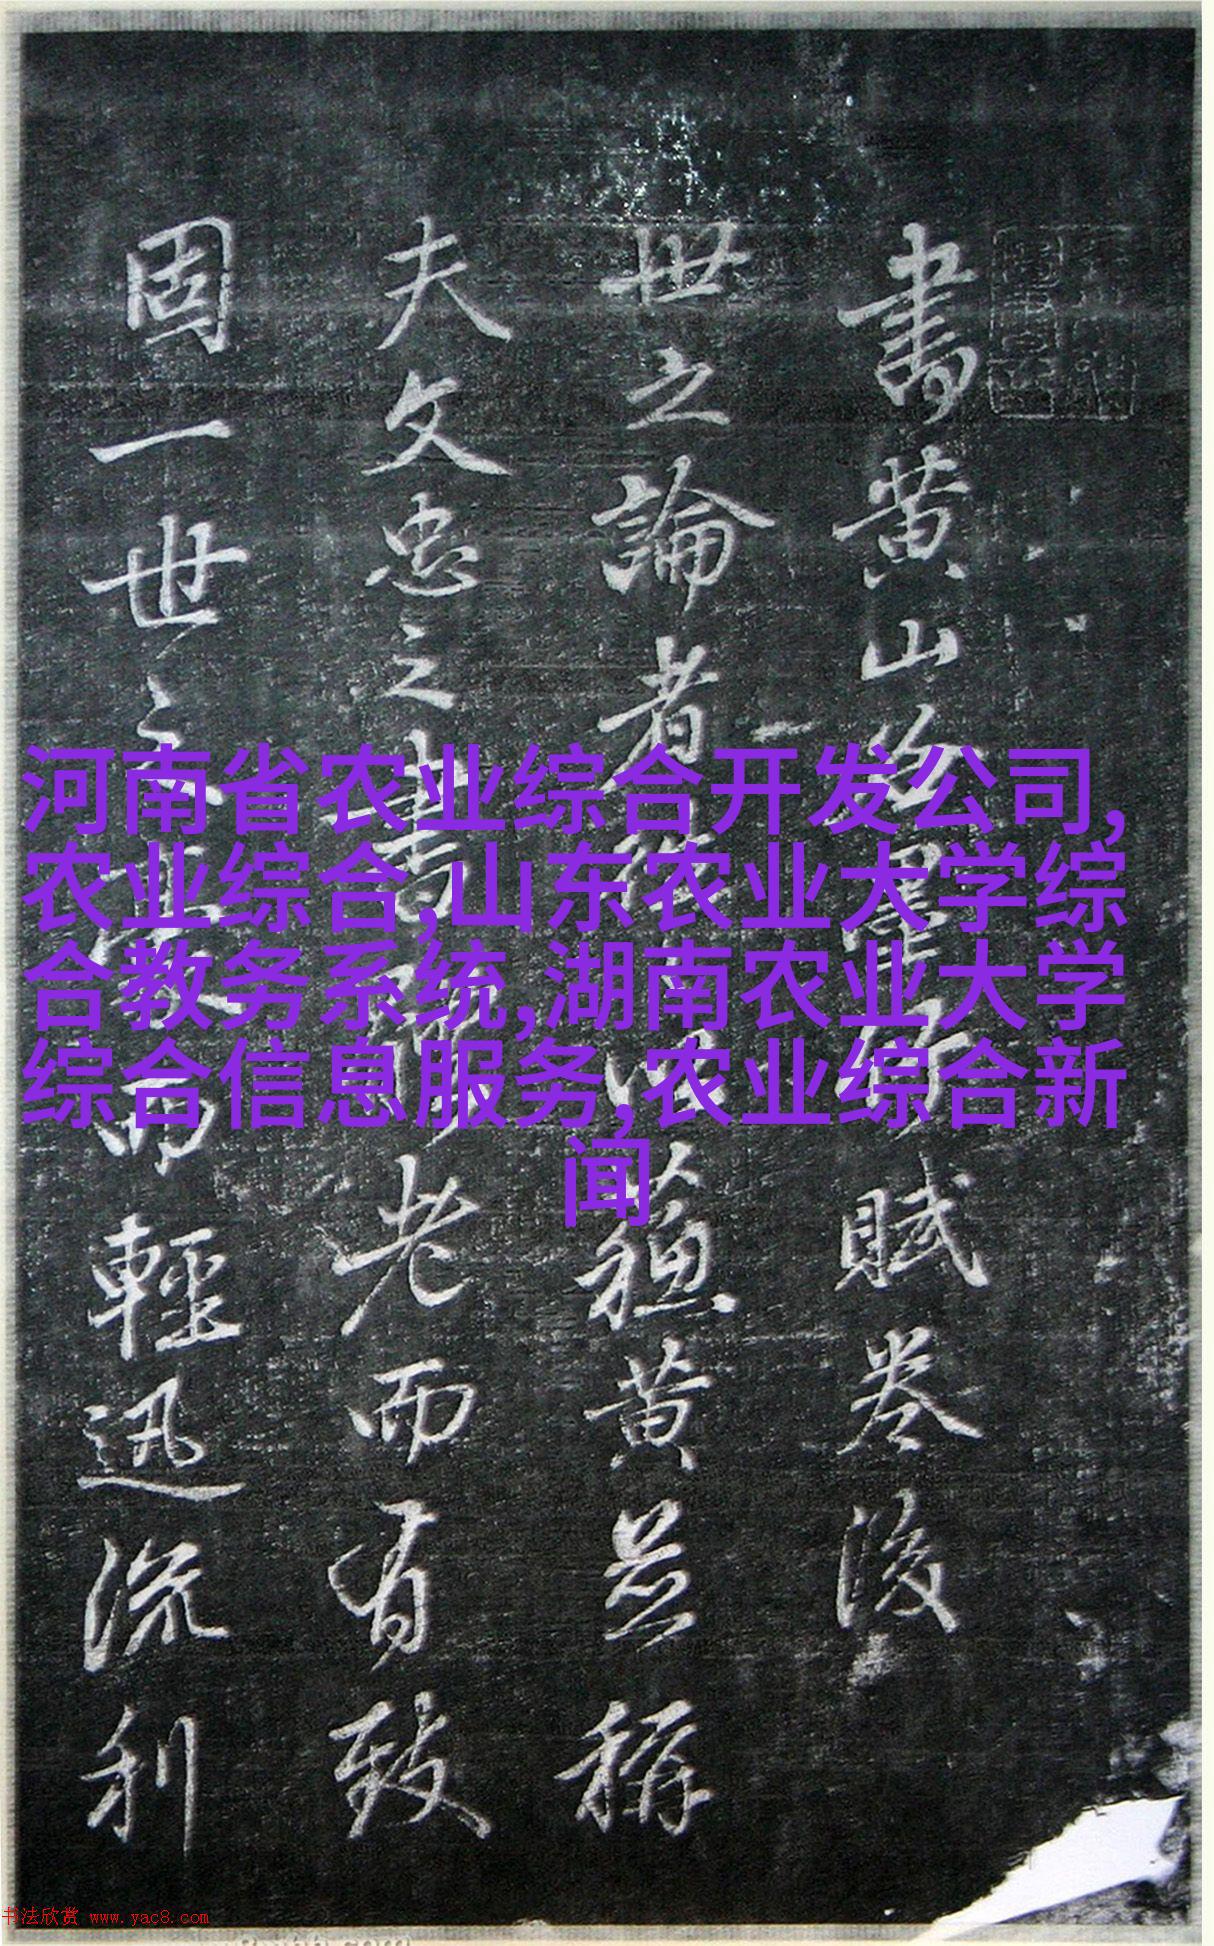 書黄山谷賦卷後
世之論者以蘇黄並稱
夫文忠之書老而有致
固一世之而輕迅流利
河南省农业综合开发公司,
农业综合,山东农业大学综
合教务系统,湖南农业大学
综合信息服务,农业综合新
闻
书法欣赏 www.yac8.com